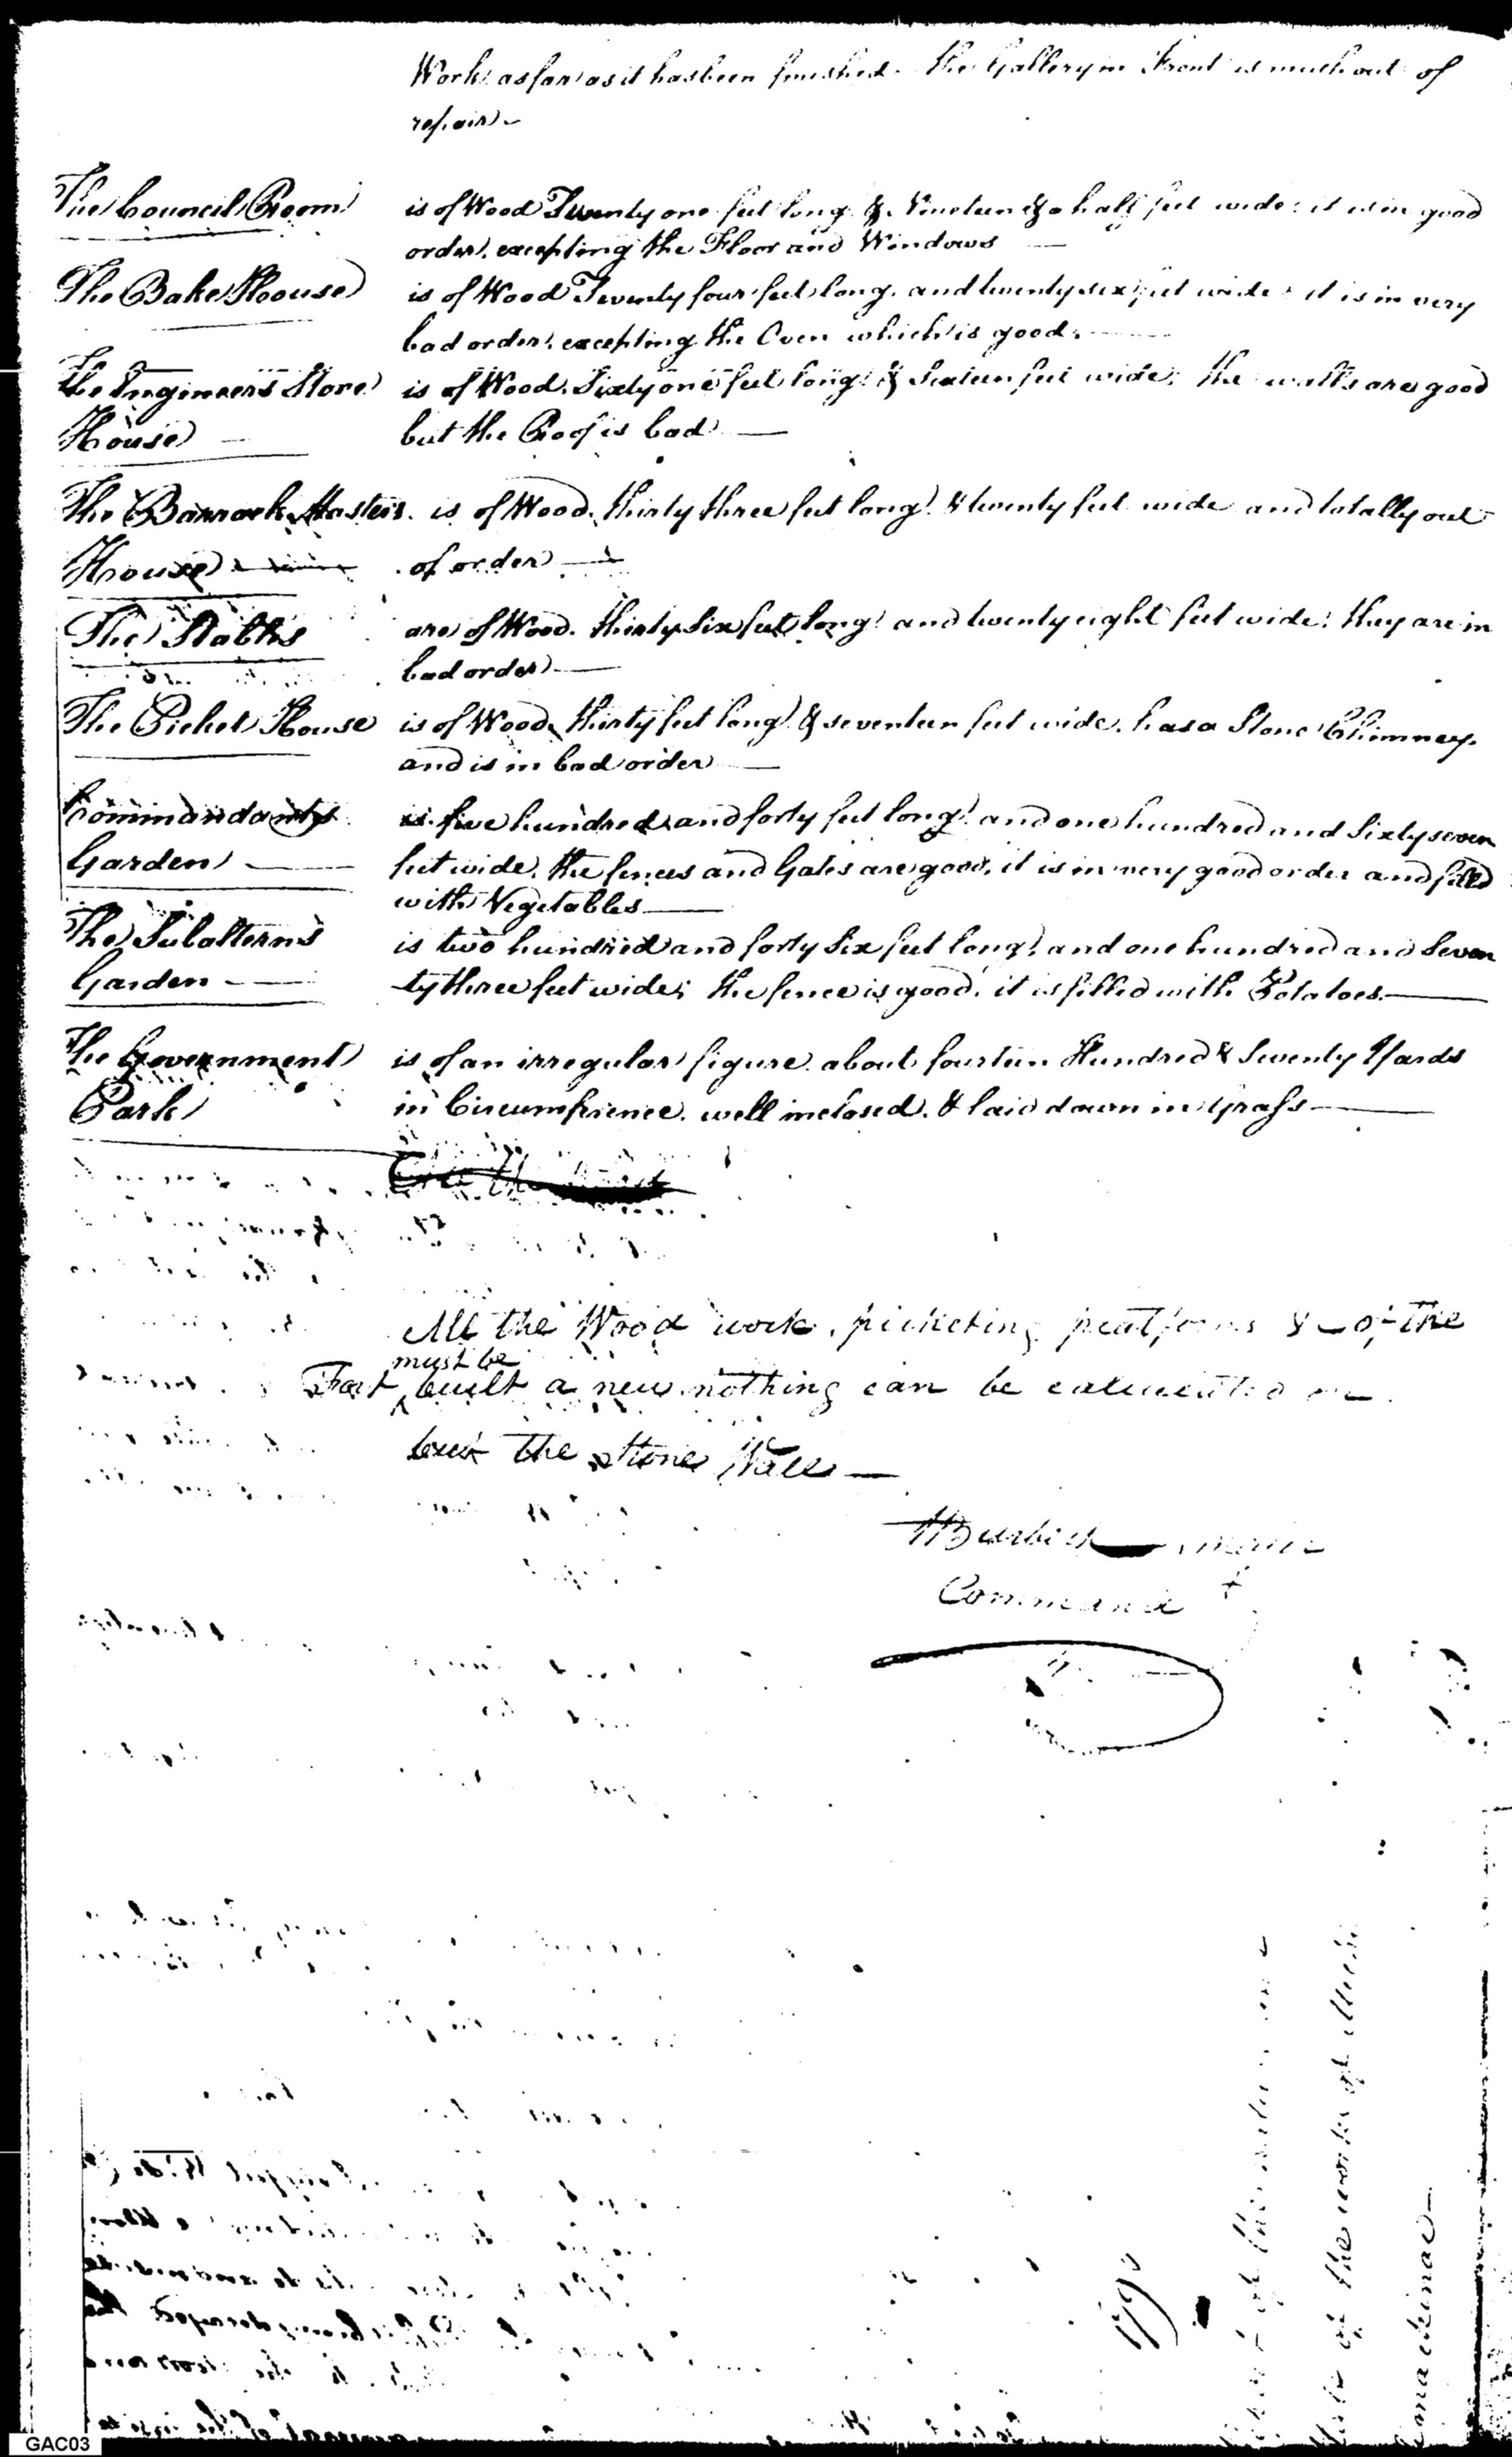 Work as far as it has been finished. the Gallery in Front is much out of
repair
The Council Room is of Wood Twenty one feet long & Nineteen & a half feet wide: it is in good
order, excepting the Floor and Windows
The Bake House is of Wood Twenty four feet long, and twenty six feet wide: it is in very
bad order, excepting the Oven which is good.
The Engineers Store is of Wood, Sixty one feet long, & Sixteen feet wide; the walls are good
House but the Roof is bad
The Barrack Masters is of Wood, thirty three feet long, & twenty feet wide and totally out
House of order
The Stables are of Wood. thirty Six feet long, and twenty eight feet wide; they are in
bad order
The Picket House is of Wood, thirty feet long, & seventeen feet wide, has a Stone Chimney,
and is in bad order
Commandants is five hundred and forty feet long, and one hundred and Sixty seven
Garden feet wide, the fences and Gates are good, it is in very good order and filled
with Vegetables
The Subalterns is two hundred and forty Six feet long, and one hundred and Seven
Garden ty three feet wide; the fence is good, it is filled with Potatoes.
The Government is of an irregular figure about fourteen Hundred & Seventy Yards
Park in Circumference, well inclosed, & laid down in Grass
All the Wood work, picketing platforms &c of the
must be
Fort built a new nothing can be calculated on
but the Stone Wall
HBurbeck
Command t
of the works at Mich
imackinac
GAC03